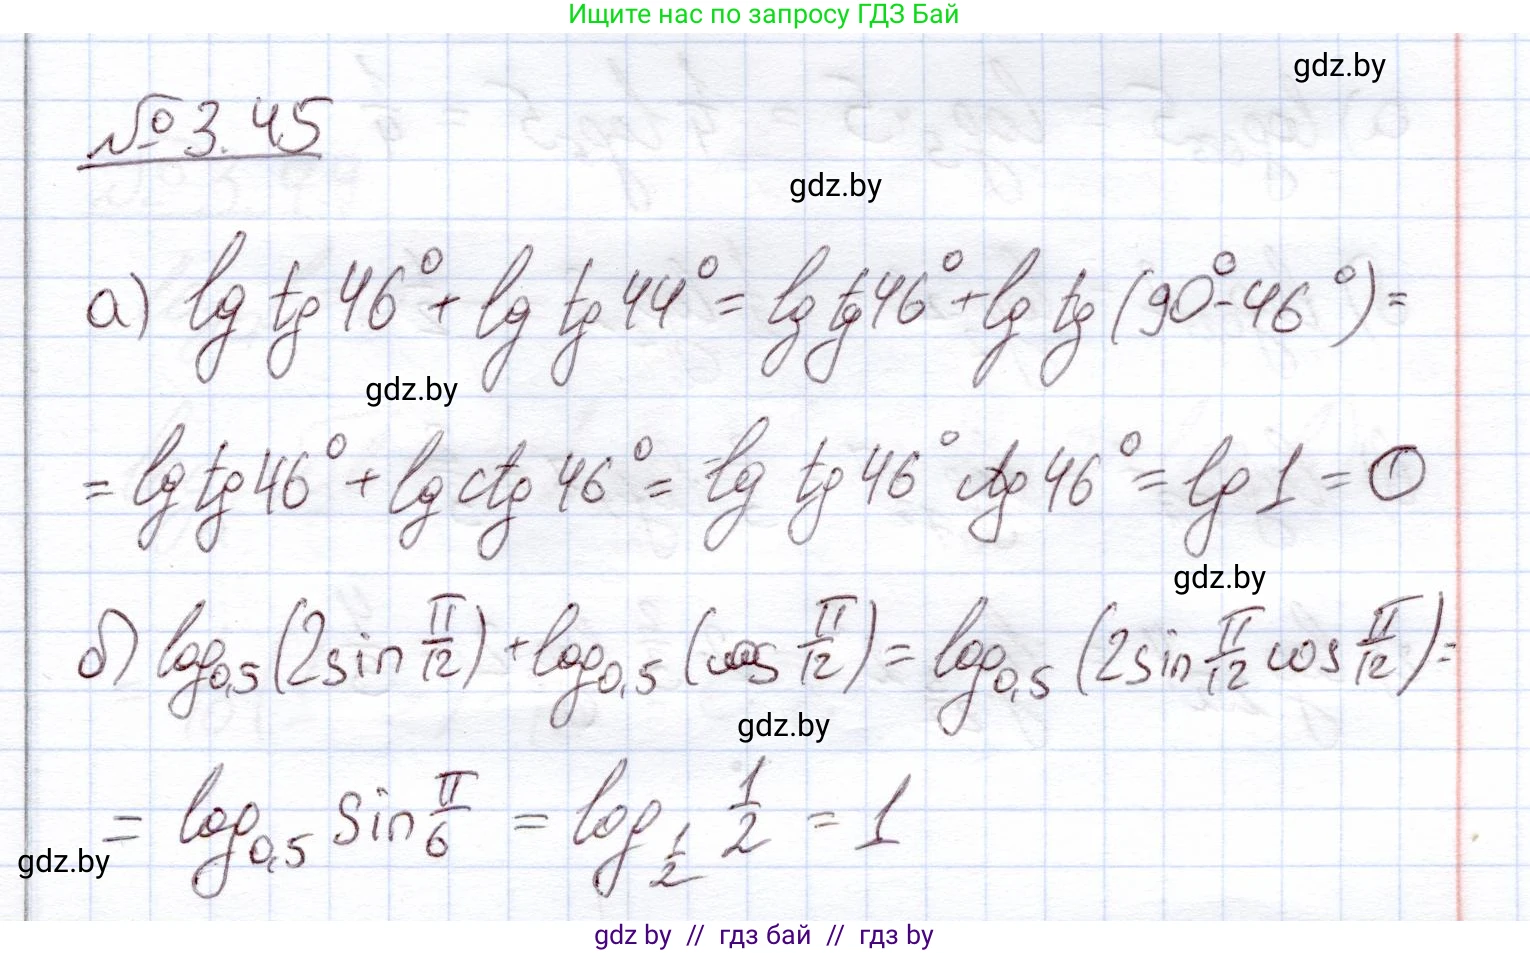 Ищите нас по запросу ГДЗ Бай
gdz.by
№ 3.45
gdz.by
а) lg tg 46° + lg tg 44° = lg tg 46° + lg tg (90° - 46°) =
gdz.by
= lg tg 46° + lg ctg 46° = lg tg 46° ctg 46° = lg 1 = 0
gdz.by
б) log_{0,5} (2 sin π/12) + log_{0,5} (cos π/12) = log_{0,5} (2 sin π/12 cos π/12) =
gdz.by
= log_{0,5} sin π/6 = log_{1/2} 1/2 = 1
gdz.by
gdz by // гдз бай // гдз by